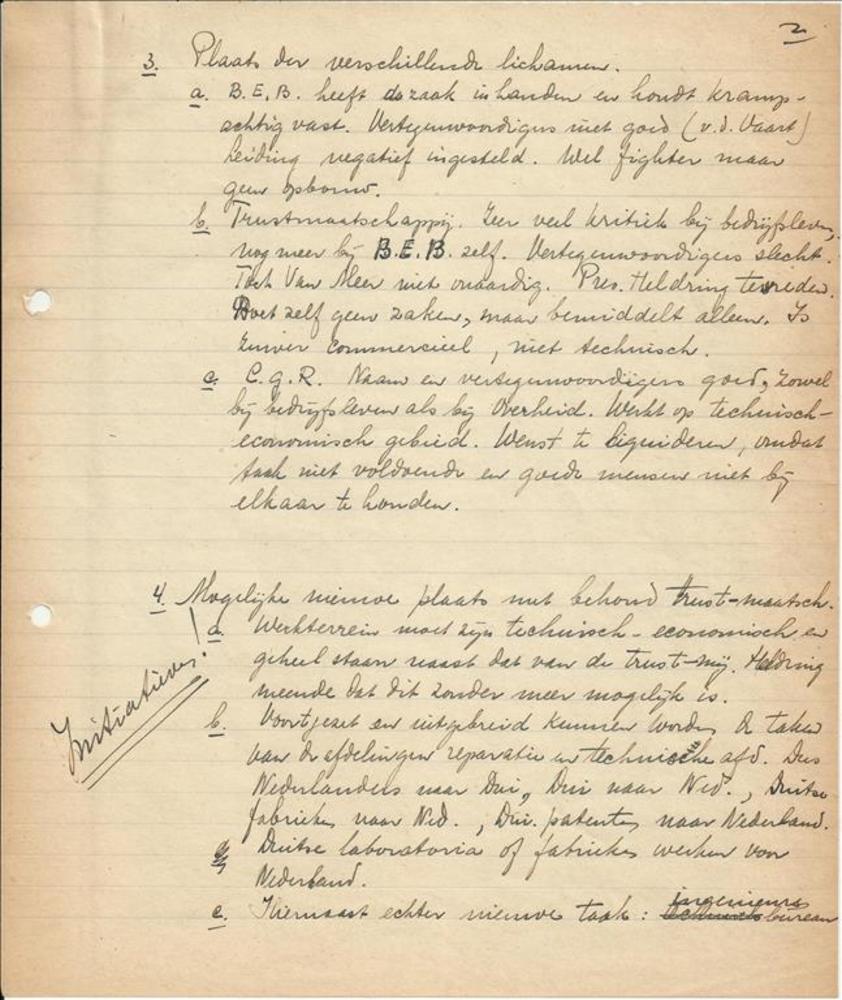 2
3. Plaats der verschillende lichamen.
a. B.E.B. heeft de zaak in handen en houdt kramp-
achtig vast. Vertegenwoordigers niet goed (v.d. Vaart)
Leiding negatief ingesteld. Wel fighter maar
geen opbouw.
b. Trustmaatschappij. Zeer veel kritiek bij bedrijfsleven,
nog meer bij B.E.B. zelf. Vertegenwoordigers slecht.
Toch Van Meer niet onaardig. Pres. Heldring tevreden.
Doet zelf geen zaken, maar bemiddelt alleen. Is
zuiver commercieel, niet technisch.
c. C.G.R. Naam en vertegenwoordigers goed, zowel
bij bedrijfsleven als bij Overheid. Werkt op technisch-
economisch gebied. Wenst te liquideren, omdat
taak niet voldoende en goede mensen niet bij
elkaar te houden.
4. Mogelijke nieuwe plaats met behoud trust-maatsch.
a. Werkterrein moet zijn technisch-economisch en
geheel staan naast dat van de trust-mij. Heldring
meende dat dit zonder meer mogelijk is.
Initiatieven!
b. Voortgezet en uitgebreid kunnen worden de taken
van de afdelingen reparatie en technische afd. Dus
Nederlanders naar Dui, Dui naar Ned., Duitse
fabrieken naar Ned., Dui. patenten naar Nederland.
Duitse laboratoria of fabrieken werken voor
Nederland.
c. Hiernaast echter nieuwe taak: ingenieurs
bureau